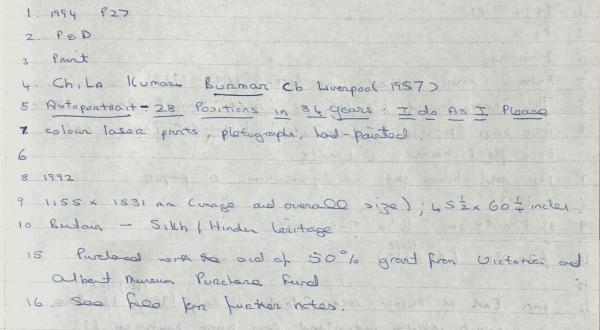 1. 1994 P27
2. P&D
3 Print
4. Chila Kumari Burman (b. Liverpool 1957)
5 Autoportrait - 28 Positions in 34 Years: I do As I Please
7 colour laser prints, photographs, had-painted
6
8 1992
9 1155 x 1531 mm (image and overall size); 45 1/2 x 60 1/4 inches.
10 Britain - Sikh / Hindu heritage
15 Purchased with the aid of 50% grant from Victoria and
Albert Museum Purchase Fund
16. See file for further notes.